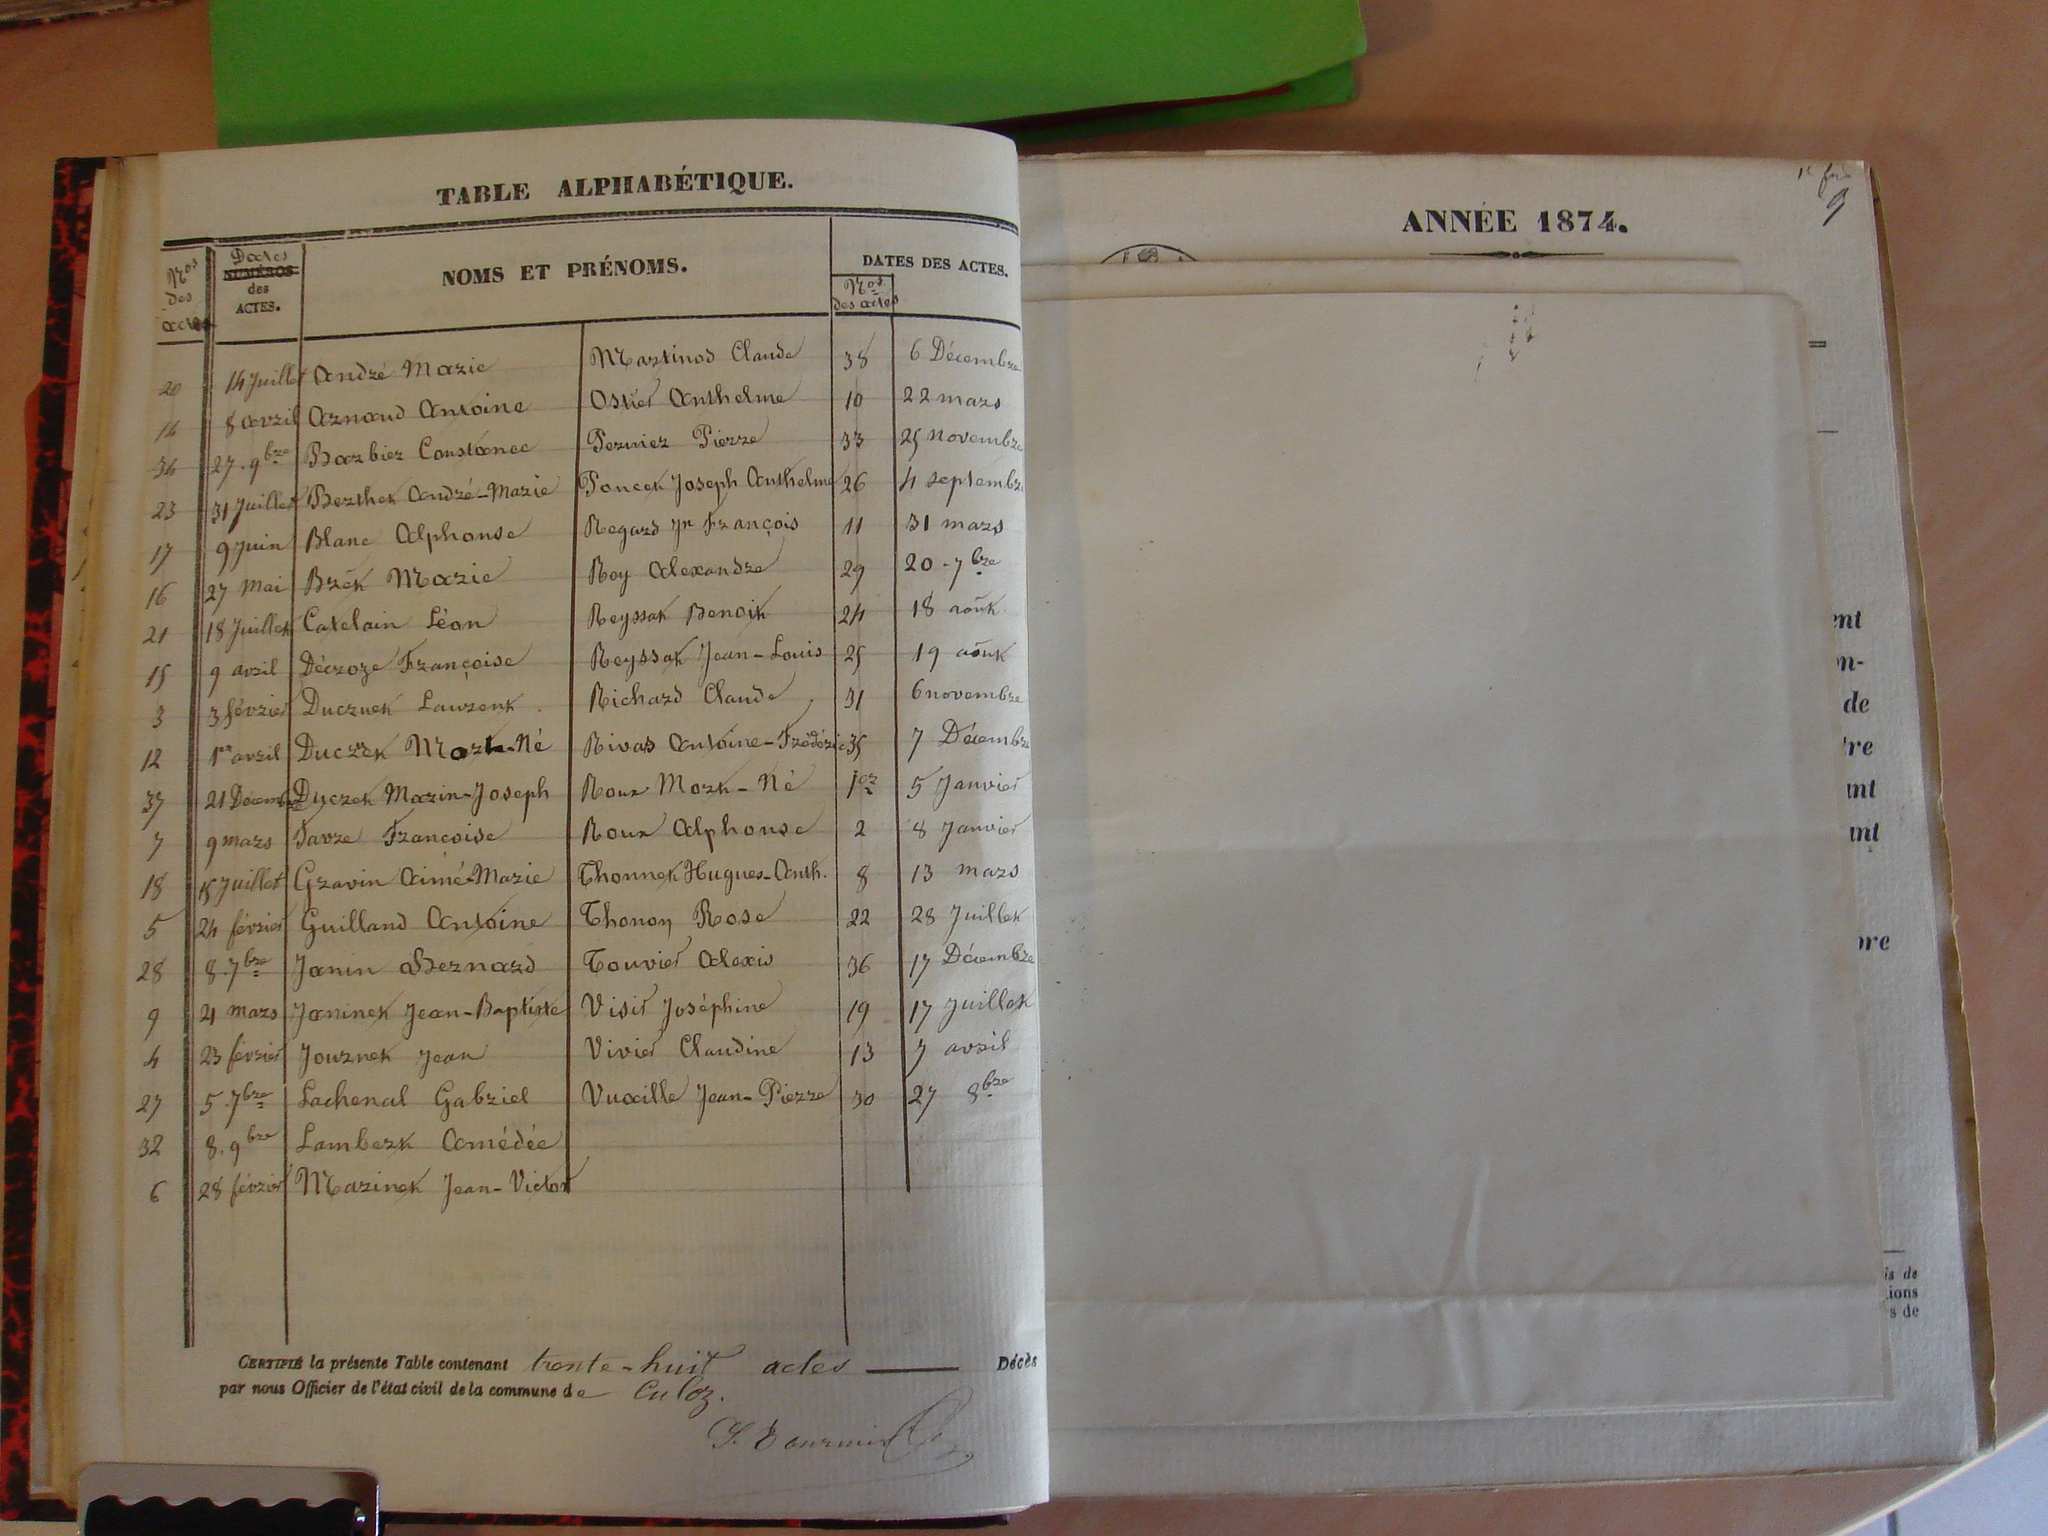 TABLE ALPHABÉTIQUE.
Nos des actes
Dates NUMÉROS des ACTES.
NOMS ET PRÉNOMS.
DATES DES ACTES.
Nos des actes
20 14 Juillet André Marie Martinod Claude 38 6 Décembre
14 8 avril Arnaud Antoine Ostier Anthelme 10 22 mars
34 27. 9bre Barbier Constance Pernier Pierre 33 25 novembre
23 31 Juillet Berthet André-Marie Poncet Joseph Anthelme 26 4 septembre
17 9 Juin Blanc Alphonse Regard Jn François 11 31 mars
16 27 Mai Brét Marie Rey Alexandre 29 20-7bre
21 18 Juillet Catelain Léon Reyssat Benoit 24 18 août
15 9 avril Décroze Françoise Reyssat Jean-Louis 25 19 août
3 3 février Ducruet Laurent Richard Claude 31 6 novembre
12 1er avril Duczet Mort-Né Rivas Antoine-Frédéric 35 7 Décembre
37 21 Décembre Duczet Marin-Joseph Roux Mort-Né 1er 5 Janvier
7 9 mars Favre Françoise Roux Alphonse 2 8 Janvier
18 15 Juillet Gravin Aimé-Marie Thonnet Hugues-Anth. 8 13 mars
5 24 février Guilland Antoine Thonon Rose 22 28 Juillet
28 8.7bre Janin Bernard Touvier Alexis 36 17 Décembre
9 21 mars Janinet Jean-Baptiste Visir Joséphine 19 17 Juillet
4 23 février Journet Jean Vivier Claudine 13 7 avril
27 5.7bre Lachenal Gabriel Vuaille Jean-Pierre 30 27 8bre
32 8.9bre Lambert Amédée
6 28 février Marinet Jean-Victor
CERTIFIÉ la présente Table contenant trente-huit actes Décès
par nous Officier de l'état civil de la commune de Culoz.
ANNÉE 1874.
9
ent
on-
de
tre
ant
unt
bre
is de
tions
s de